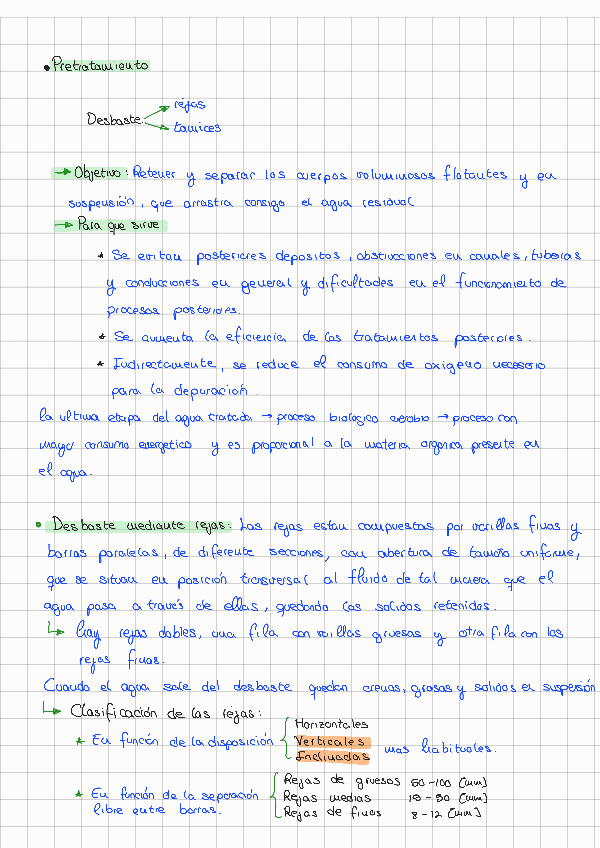 • Pretratamiento
rejas
Desbaste
tamices
→ Objetivo: Retener y separar los cuerpos voluminosos flotantes y en
suspensión, que arrastra consigo el agua residual
→ Para que sirve
* Se evitan posteriores depositos, obstrucciones en canales, tuberias
y conducciones en general y dificultades en el funcionamiento de
procesos posteriores.
* Se aumenta la eficiencia de los tratamientos posteriores.
* Indirectamente, se reduce el consumo de oxigeno necesario
para la depuración.
la ultima etapa del agua tratada → proceso biologico aerobio → proceso con
mayor consumo energetico y es proporcional a la materia organica presente en
el agua.
• Desbaste mediante rejas: Las rejas estan compuestas por varillas finas y
barras paralelas, de diferente secciones, con abertura de tamaño uniforme,
que se situan en posición transversal al fluido de tal manera que el
agua pasa a través de ellas, quedando los solidos retenidos.
↳ Hay rejas dobles, una fila con varillas gruesas y otra fila con las
rejas finas.
Cuando el agua sale del desbaste quedan arenas, grasas y solidos en suspensión
↳ Clasificación de las rejas:
Horizontales
* En función de la disposición { Verticales mas habituales.
Inclinadas
Rejas de gruesos 50-100 [mm]
* En función de la separación { Rejas medias
libre entre barras. Rejas de finos 8-12 [mm]